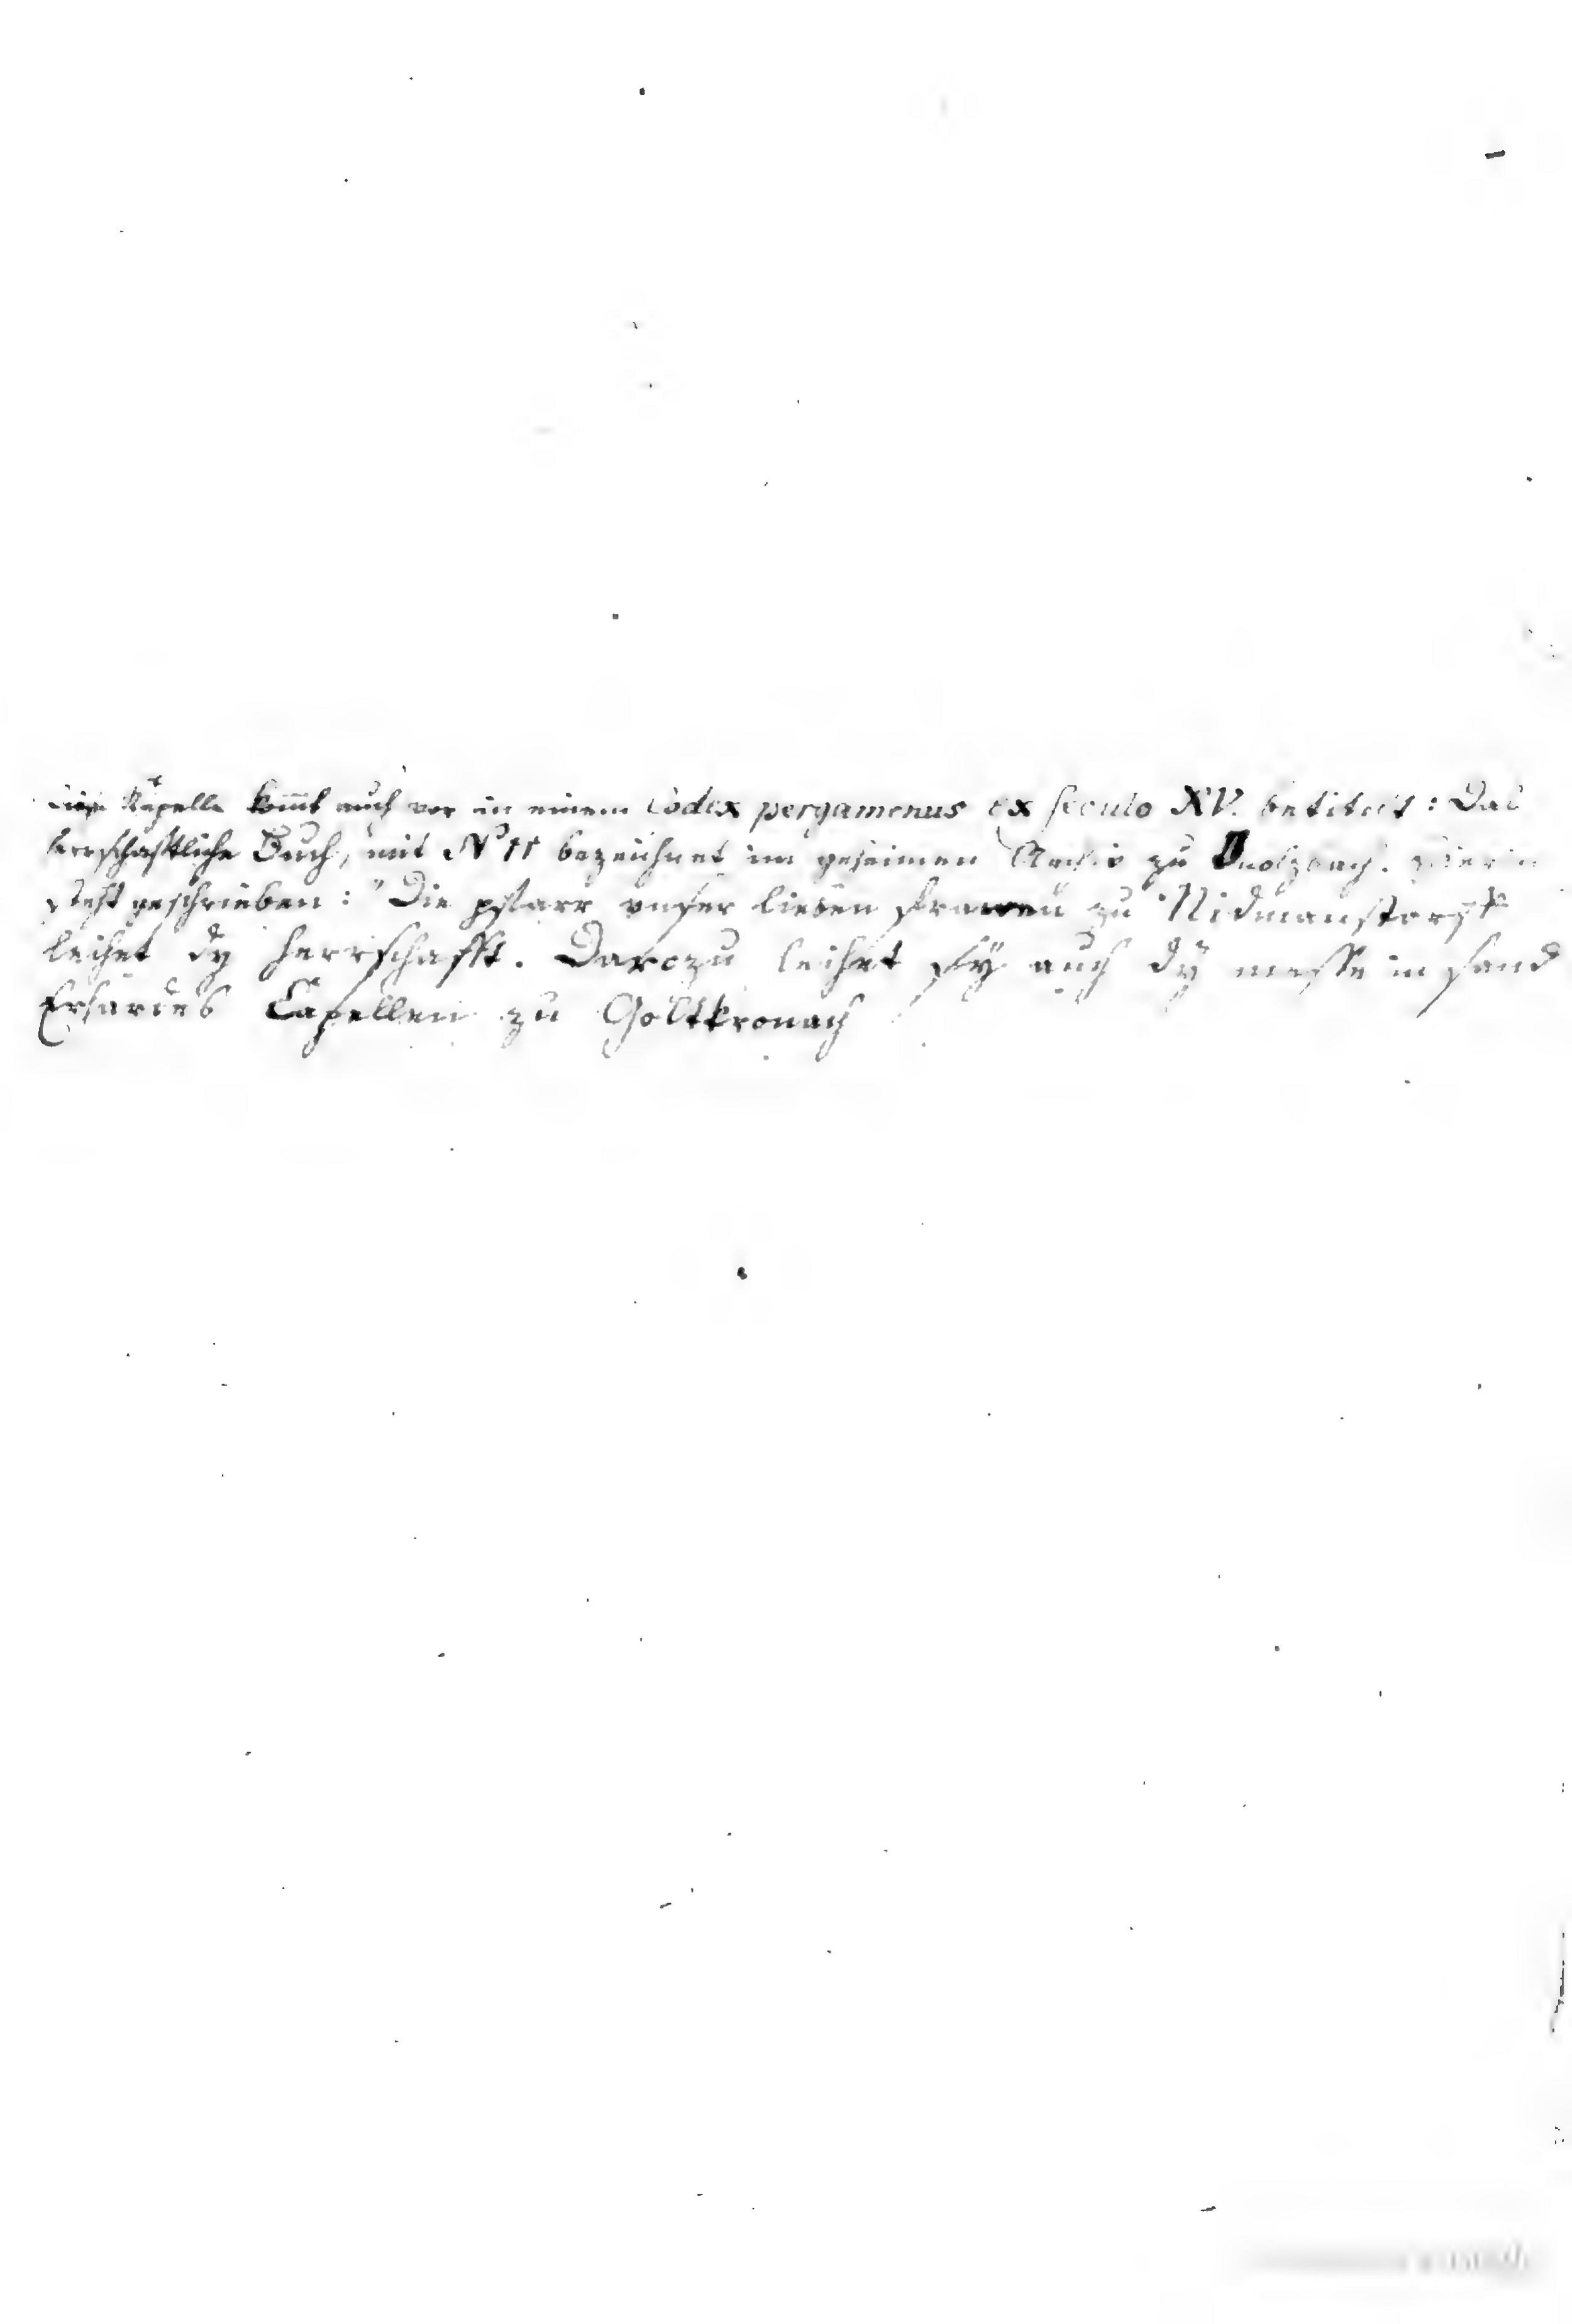 Diese Kapelle kommt auch vor in einem Codex pergamenus ex seculo XV. betitelt: Das
herrschaftliche Buch, mit N 11 bezeichnet im geheimen Archiv zu Onolzbach. Hierin
steht geschrieben: "Die pfarr vnser lieben frawen zu Nidmanstorff
leihet dy herrschafft. Darczu leihet sy auch dy messe in sand
Erhardes Capellen zu Goltkronach